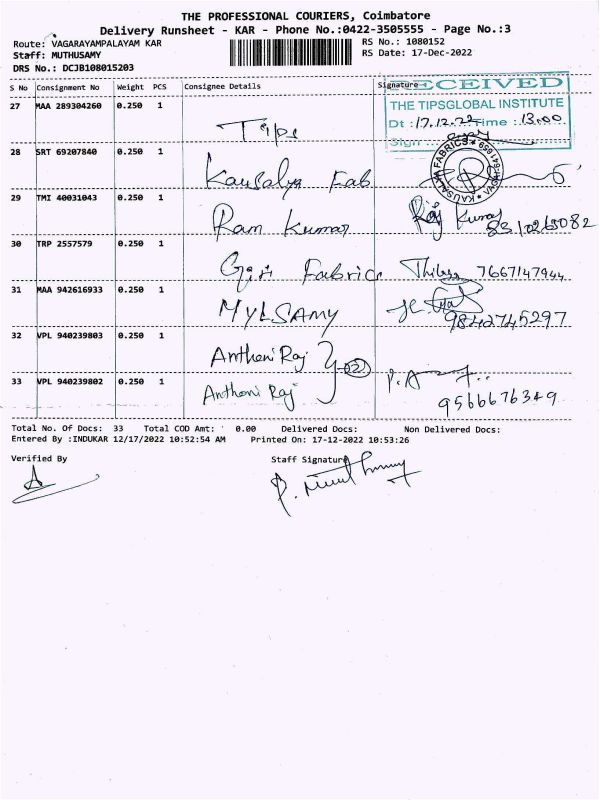 THE PROFESSIONAL COURIERS, Coimbatore
Delivery Runsheet - KAR - Phone No.:0422-3505555 - Page No.:3
Route: VAGARAYAMPALAYAM KAR
RS No.: 1080152
Staff: MUTHUSAMY
RS Date: 17-Dec-2022
DRS No.: DCJB108015203
S No Consignment No Weight PCS Consignee Details Signature
RECEIVED
THE TIPSGLOBAL INSTITUTE
Dt : 17.12.22 Time : 13.00
Sign
27 MAA 289304260 0.250 1 Tips
28 SRT 69207840 0.250 1 Kausalya Fab
KAUSALYA FABRICS
29 TMI 40031043 0.250 1 Ram Kumar Raj Kumar 8310265082
30 TRP 2557579 0.250 1 Giri Fabrics 7667147944
31 MAA 942616933 0.250 1 MYLSAMY 9842745297
32 VPL 940239803 0.250 1 Anthoni Raj (02)
33 VPL 940239802 0.250 1 Anthoni Raj 9566676349
Total No. Of Docs: 33 Total COD Amt: 0.00 Delivered Docs: Non Delivered Docs:
Entered By :INDUKAR 12/17/2022 10:52:54 AM Printed On: 17-12-2022 10:53:26
Verified By Staff Signature